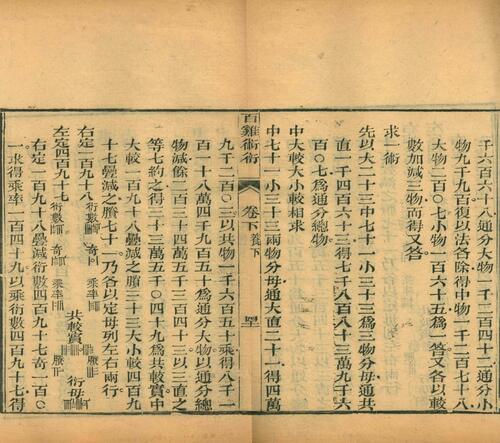 千六百六十八通分大物一千二百四十八通分小
物九千九百復以法各除得中物一千二百七十八
大物二百〇七小物一百六十五爲一答又各以較
數加減三物而得又答
求一術
先以大二十三中七十一小三十三爲三物分母通共
直一千四百六十三得七千八百八十三萬九千六
百〇七爲通分總物
中大較大小較相求
中七十一小三十三兩物分母通大直二十一得四萬
百雞術衍
卷下
九千二百〇三以共物一千六百五十乘得八千一
百一十八萬四千九百五十爲通分大物以通分總
物減餘二百三十四萬五千三百四十三以三直之
等七約之得三十三萬五千〇四十九爲共較實中
大較一百九十八疊減之賸三十三大小較四百九
十七疊減之賸七十一乃各以定母列左右兩行
右定一百九十八 衍數 奇 乘率 賸
共較實 衍母
左定四百九十七 衍數 奇 乘率 賸
右定一百九十八疊減衍數四百九十七奇一百〇
一求得乘率一百四十九以乘衍數四百九十七得